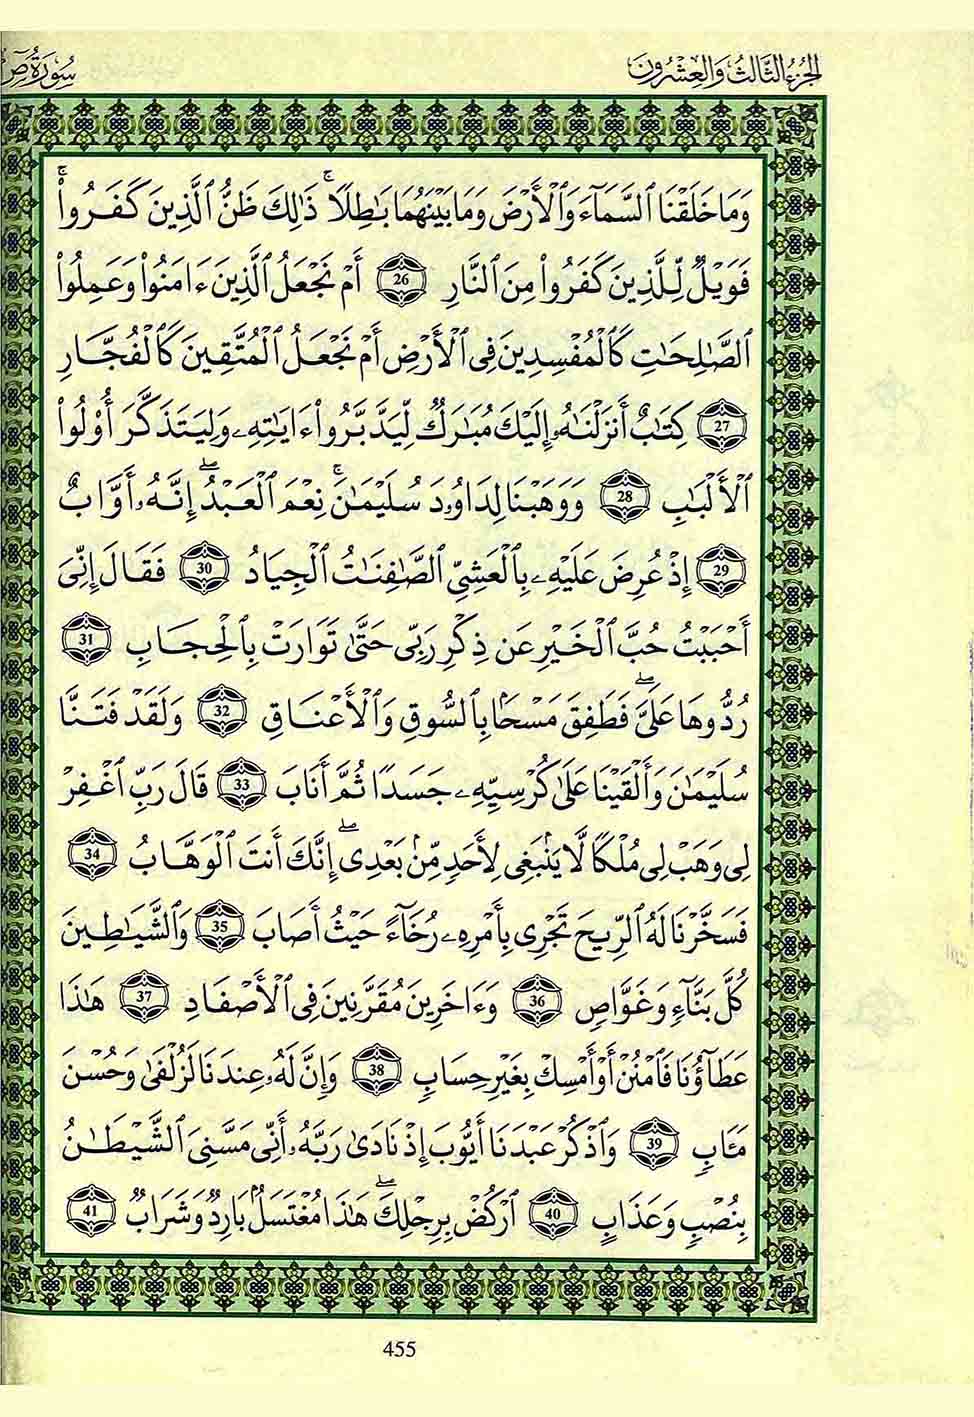 الجزء الثالث والعشرون
سورة ص
وَمَا خَلَقْنَا ٱلسَّمَآءَ وَٱلْأَرْضَ وَمَا بَيْنَهُمَا بَٰطِلًا ۚ ذَٰلِكَ ظَنُّ ٱلَّذِينَ كَفَرُوا۟ ۚ
فَوَيْلٌ لِّلَّذِينَ كَفَرُوا۟ مِنَ ٱلنَّارِ 26 أَمْ نَجْعَلُ ٱلَّذِينَ ءَامَنُوا۟ وَعَمِلُوا۟
ٱلصَّٰلِحَٰتِ كَٱلْمُفْسِدِينَ فِى ٱلْأَرْضِ أَمْ نَجْعَلُ ٱلْمُتَّقِينَ كَٱلْفُجَّارِ
27 كِتَٰبٌ أَنزَلْنَٰهُ إِلَيْكَ مُبَٰرَكٌ لِّيَدَّبَّرُوٓا۟ ءَايَٰتِهِۦ وَلِيَتَذَكَّرَ أُو۟لُوا۟
ٱلْأَلْبَٰبِ 28 وَوَهَبْنَا لِدَاوُۥدَ سُلَيْمَٰنَ ۚ نِعْمَ ٱلْعَبْدُ ۖ إِنَّهُۥٓ أَوَّابٌ
29 إِذْ عُرِضَ عَلَيْهِ بِٱلْعَشِىِّ ٱلصَّٰفِنَٰتُ ٱلْجِيَادُ 30 فَقَالَ إِنِّىٓ
أَحْبَبْتُ حُبَّ ٱلْخَيْرِ عَن ذِكْرِ رَبِّى حَتَّىٰ تَوَارَتْ بِٱلْحِجَابِ 31
رُدُّوهَا عَلَىَّ ۖ فَطَفِقَ مَسْحًۢا بِٱلسُّوقِ وَٱلْأَعْنَاقِ 32 وَلَقَدْ فَتَنَّا
سُلَيْمَٰنَ وَأَلْقَيْنَا عَلَىٰ كُرْسِيِّهِۦ جَسَدًا ثُمَّ أَنَابَ 33 قَالَ رَبِّ ٱغْفِرْ
لِى وَهَبْ لِى مُلْكًا لَّا يَنۢبَغِى لِأَحَدٍ مِّنۢ بَعْدِىٓ ۖ إِنَّكَ أَنتَ ٱلْوَهَّابُ 34
فَسَخَّرْنَا لَهُ ٱلرِّيحَ تَجْرِى بِأَمْرِهِۦ رُخَآءً حَيْثُ أَصَابَ 35 وَٱلشَّيَٰطِينَ
كُلَّ بَنَّآءٍ وَغَوَّاصٍ 36 وَءَاخَرِينَ مُقَرَّنِينَ فِى ٱلْأَصْفَادِ 37 هَٰذَا
عَطَآؤُنَا فَٱمْنُنْ أَوْ أَمْسِكْ بِغَيْرِ حِسَابٍ 38 وَإِنَّ لَهُۥ عِندَنَا لَزُلْفَىٰ وَحُسْنَ
مَـَٔابٍ 39 وَٱذْكُرْ عَبْدَنَآ أَيُّوبَ إِذْ نَادَىٰ رَبَّهُۥٓ أَنِّى مَسَّنِىَ ٱلشَّيْطَٰنُ
بِنُصْبٍ وَعَذَابٍ 40 ٱرْكُضْ بِرِجْلِكَ ۖ هَٰذَا مُغْتَسَلٌۢ بَارِدٌ وَشَرَابٌ 41
455